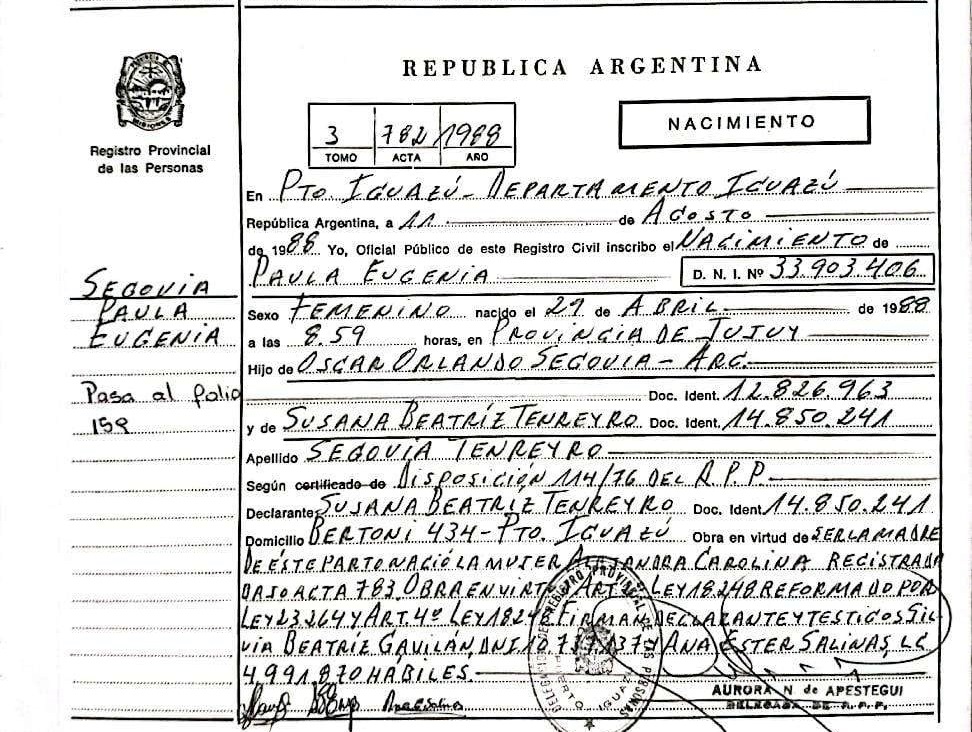 REPUBLICA ARGENTINA
MISIONES
Registro Provincial
de las Personas
3 782 1988
TOMO ACTA AÑO
NACIMIENTO
En PTO. IGUAZÚ - DEPARTAMENTO IGUAZÚ
República Argentina, a 11 de AGOSTO
de 1988 Yo, Oficial Público de este Registro Civil inscribo el NACIMIENTO de
PAULA EUGENIA D. N. I. Nº 33.903.406
SEGOVIA
PAULA
EUGENIA
Pasa al folio
159
Sexo FEMENINO nacido el 29 de ABRIL de 1988
a las 8.59 horas, en PROVINCIA DE JUJUY
Hijo de OSCAR ORLANDO SEGOVIA - ARG.
Doc. Ident. 12.826.963
y de SUSANA BEATRÍZ TENREYRO Doc. Ident. 14.850.241
Apellido SEGOVIA TENREYRO
Según certificado de DISPOSICIÓN 114/76 DEL R.P.P.
Declarante SUSANA BEATRÍZ TENREYRO Doc. Ident. 14.850.241
Domicilio BERTONI 434 - PTO. IGUAZÚ Obra en virtud de SER LA MADRE
DE ÉSTE PARTO NACIÓ LA MUJER ALEJANDRA CAROLINA REGISTRADA
BAJO ACTA 783 OBRA EN VIRTUD ART. LEY 18248 REFORMADO POR
LEY 23264 Y ART. 4º LEY 18248 FIRMAN DECLARANTE Y TESTIGOS SIL-
VIA BEATRÍZ GAVILÁN, DNI ANA ESTER SALINAS, LC
4.991.870 HÁBILES.
AURORA N de APESTEGUI
DELEGADA DE R.P.P.
REGISTRO PROVINCIAL DE LAS PERSONAS
PUERTO IGUAZU